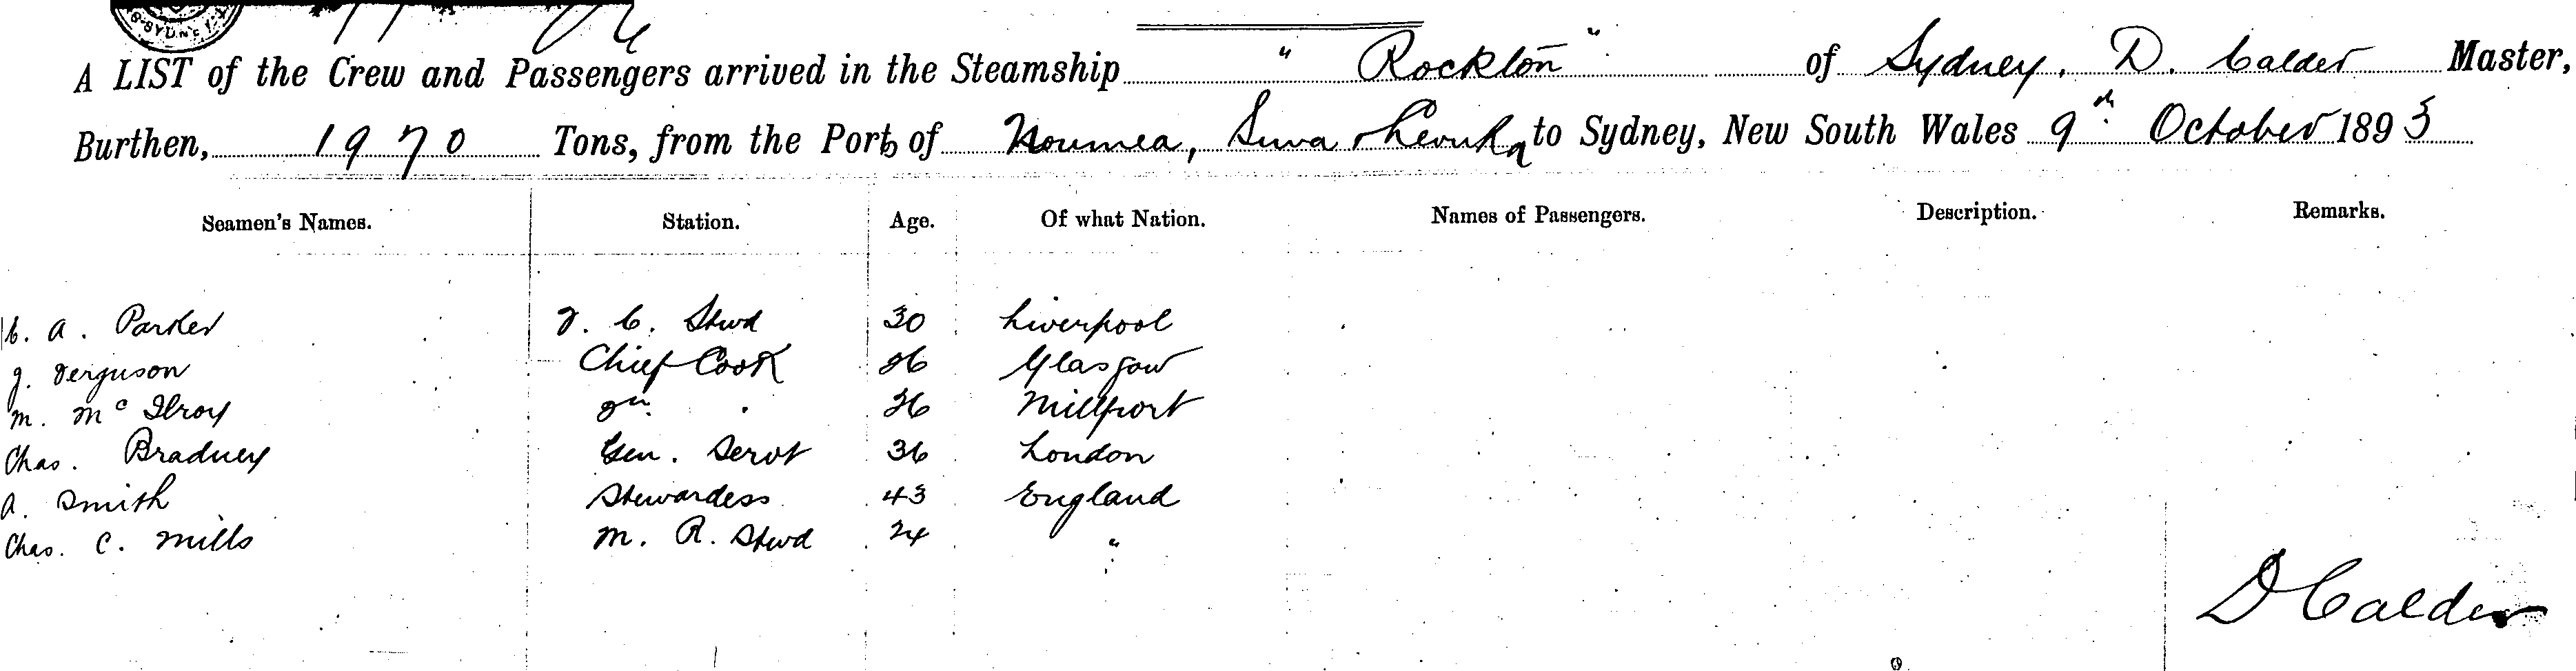 SYDNEY
A LIST of the Crew and Passengers arrived in the Steamship " Rockton " of Sydney, D. Calder Master,
Burthen, 1970 Tons, from the Ports of Noumea, Suva & Levuka to Sydney, New South Wales 9th October 1893
Seamen's Names. Station. Age. Of what Nation. Names of Passengers. Description. Remarks.
C. A. Parker F. C. Stwd 30 Liverpool
J. Ferguson Chief Cook 26 Glasgow
M. McIlroy 2nd " 36 Millport
Chas. Bradney Gen. Servt 36 London
A. Smith Stewardess 43 England
Chas. C. Mills M. R. Stwd 24 "
D Calder